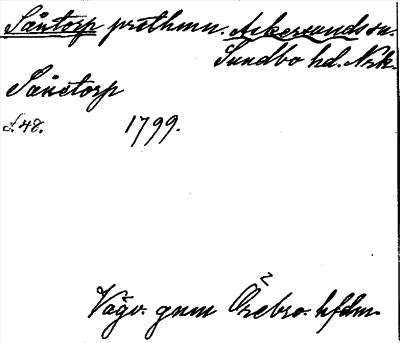 Såntorp prästhmn. Askersunds sn.
Sundbo hd. Nrk.
Sånstorp
s. 48. 1799.
Vägv. gnm Örebro hfdm.